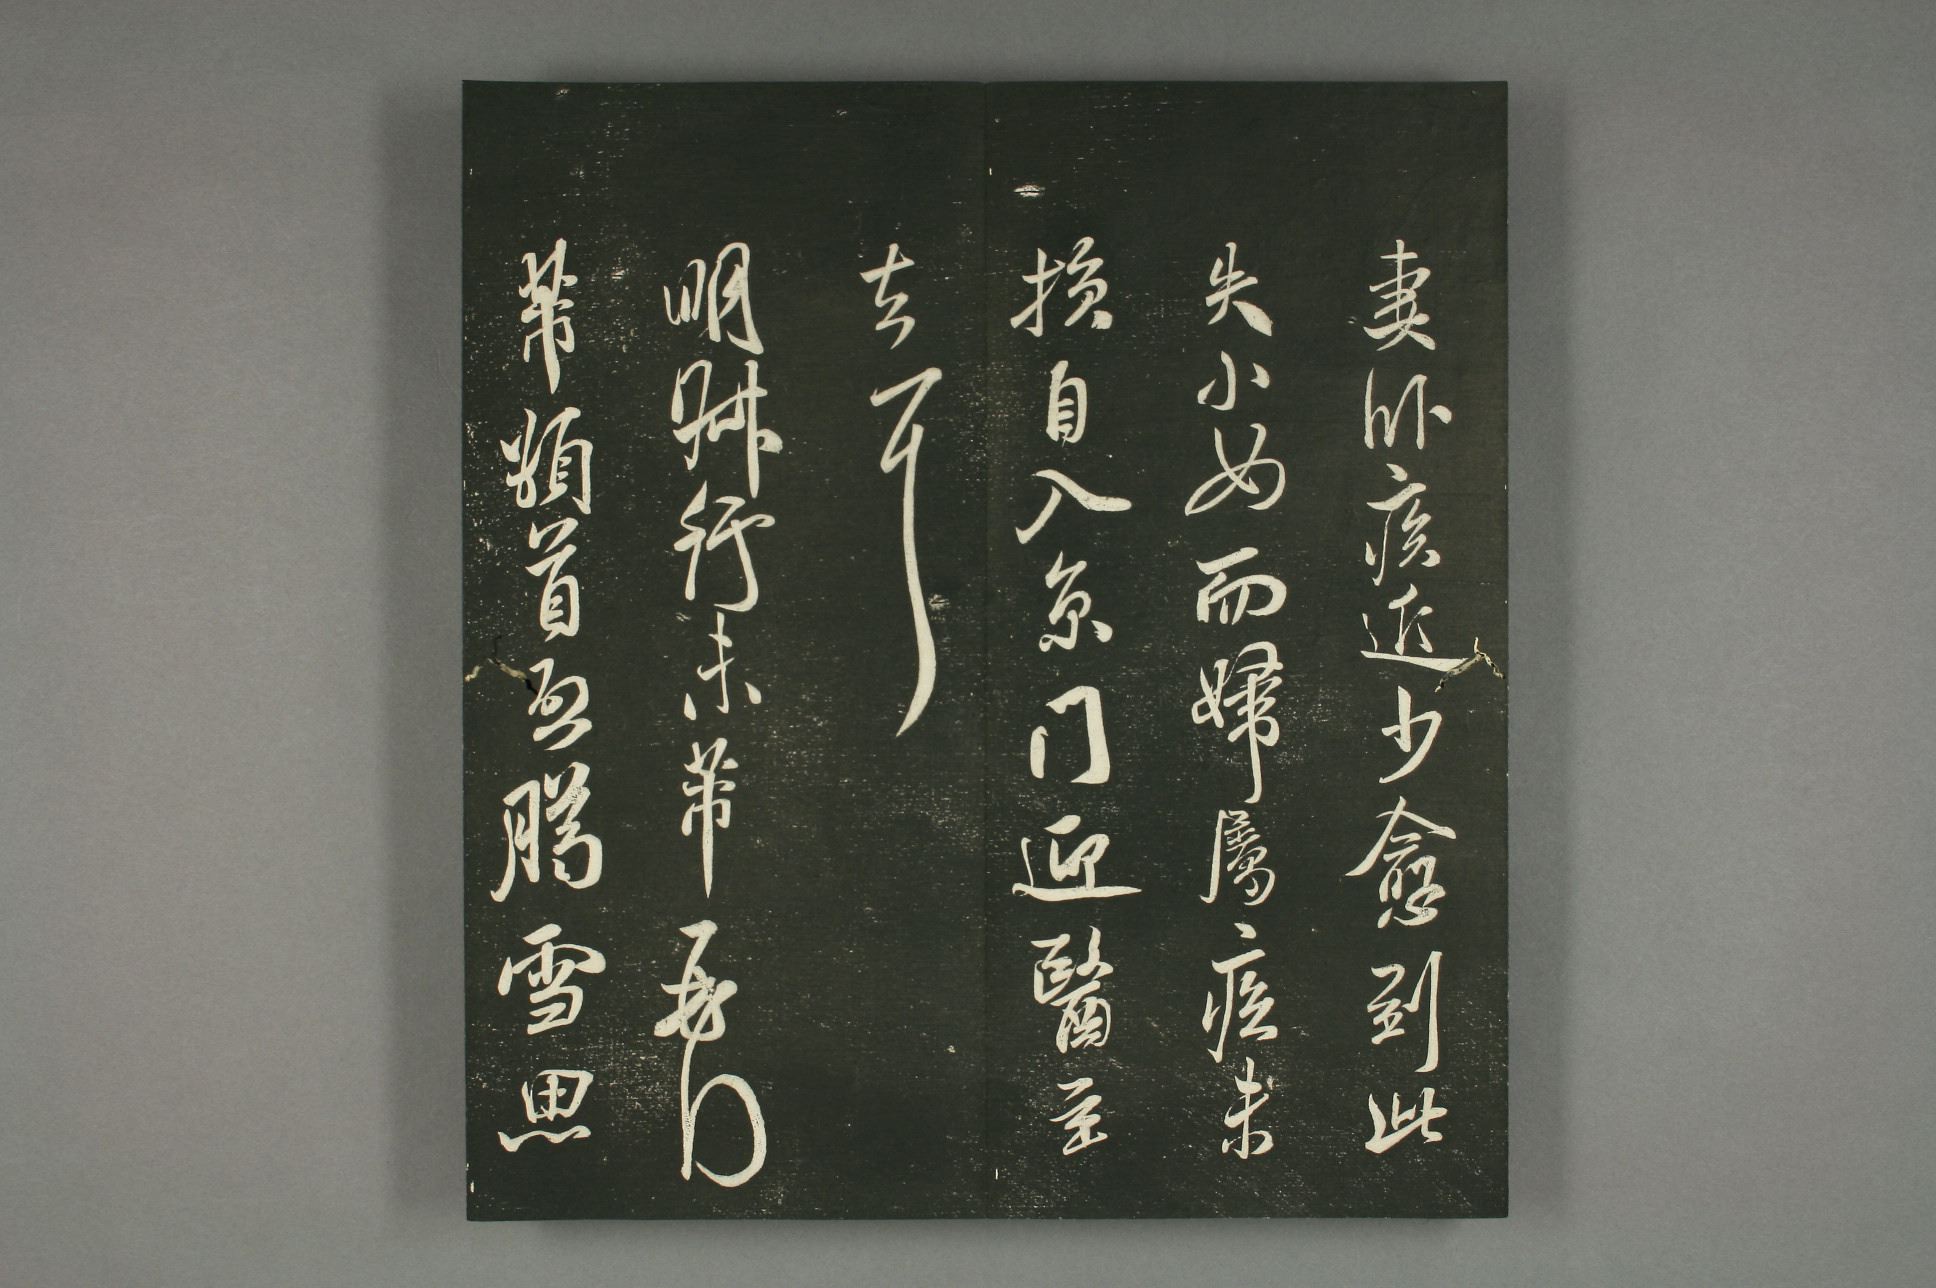 妻卧疾近少愈到此
失小女而婦屬疾未
損自入京門迎醫至
去耳
明行未芾
芾頓首啟臈雪思